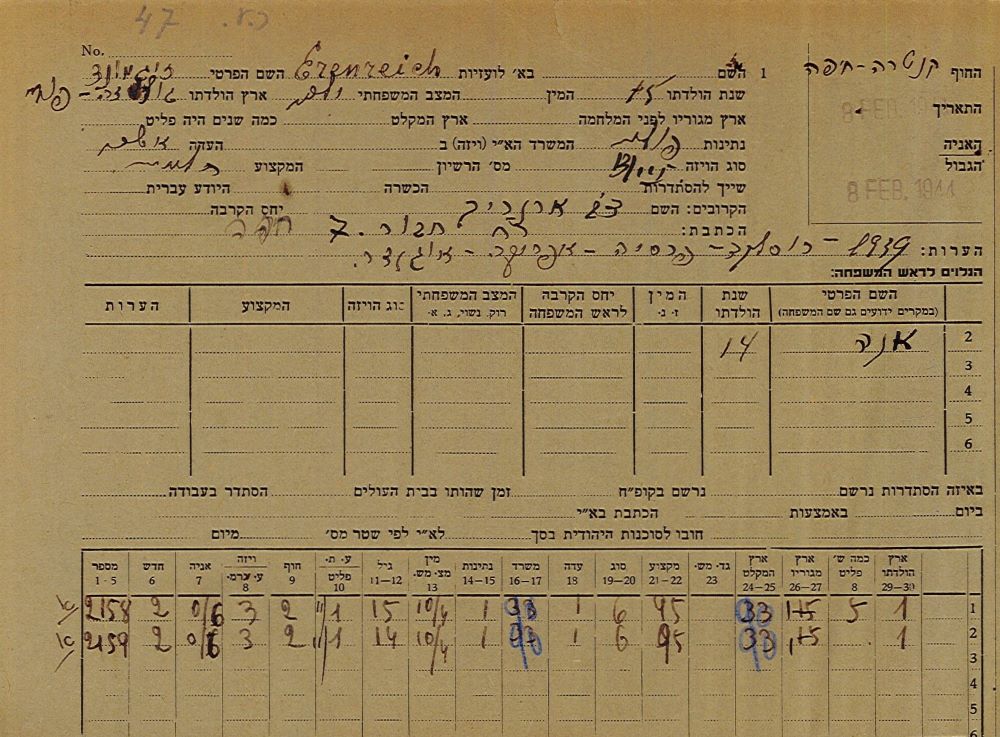 47 .ר.ע
No.
החוף קנטרה-חפה
1 השם Erenreich בא׳ לועזיות השם הפרטי זיגמונד
התאריך 8 FEB. 1944
שנת הולדתו 15 המין המצב המשפחתי ילד ארץ הולדתו
ארץ מגוריו לפני המלחמה ארץ המקלט כמה שנים היה פליט
האניה
נתינות פולנית המשרד הא״י (ויזה) ב העדה
הגבול
סוג הויזה מס׳ הרשיון המקצוע תלמיד
8 FEB. 1944
שייך להסתדרות הכשרה היודע עברית
הקרובים: השם ארנרייך יחס הקרבה
הכתבת: רח תבור 7. חפה
הערות: 1939 - רוסלנד - פרסיה - אפריקה - אוגנדה.
הנלוים לראש המשפחה:
השם הפרטי (במקרים ידועים גם שם המשפחה) שנת הולדתו המין ז. נ. יחס הקרבה לראש המשפחה המצב המשפחתי רוק, נשוי, ג. א. סוג הויזה המקצוע הערות
2 אנה 14
3
4
5
6
באיזה הסתדרות נרשם נרשם בקופ״ח זמן שהותו בבית העולים הסתדר בעבודה
ביום באמצעות הכתבת בא״י
חובו לסוכנות היהודית בסך לא״י לפי שטר מס׳ מיום
מספר 1-5 חדש 6 אניה 7 ויזה ע׳ ערמ׳ 8 חוף 9 ע. ת. פליט 10 גיל 11-12 מין מצ. מש. 13 נתינות 14-15 משרד 16-17 עדה 18 סוג 19-20 מקצוע 21-22 גד. מש. 23 ארץ המקלט 24-25 ארץ מגוריו 26-27 כמה ש׳ פליט 8 ארץ הולדתו 29-30
2158 2 0/6 3 2 1 15 10/4 1 33 1 6 95 33 1+5 5 1 1
2159 2 0/6 3 2 1 14 10/4 1 1 6 95 33 1+5 1 2
3
4
5
6